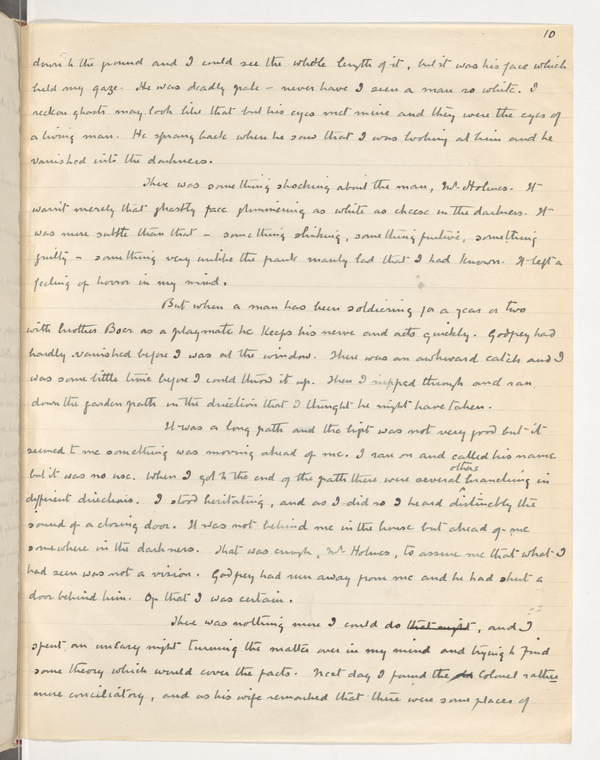 10
down to the ground and I could see the whole length of it, but it was his face which
held my gaze. He was deadly pale – never have I seen a man so white. I
reckon ghosts may look like that but his eyes met mine and they were the eyes of
a living man. He sprang back when he saw that I was looking at him and he
vanished into the darkness.
There was something shocking about the man, Mr. Holmes. It
wasn't merely that ghastly face glimmering as white as cheese in the darkness. It
was more subtle than that – something slinking, something furtive, something
guilty – something very unlike the frank manly lad that I had known. It left a
feeling of horror in my mind.
But when a man has been soldiering for a year or two
with brother Boer as a playmate he keeps his nerve and acts quickly. Godfrey had
hardly vanished before I was at the window. There was an awkward catch and I
was some little time before I could throw it up. Then I nipped through and ran
down the garden path in the direction that I thought he might have taken.
It was a long path and the light was not very good but it
seemed to me something was moving ahead of me. I ran on and called his name
but it was no use. When I got to the end of the path there were several others branching in
different directions. I stood hesitating, and as I did so I heard distinctly the
sound of a closing door. It was not behind me in the house but ahead of me
somewhere in the darkness. That was enough, Mr. Holmes, to assure me that what I
had seen was not a vision. Godfrey had run away from me and he had shut a
door behind him. Of that I was certain.
There was nothing more I could do that night, and I
spent an uneasy night turning the matter over in my mind and trying to find
some theory which would cover the facts. Next day I found the Colonel rather
more conciliatory, and as his wife remarked that there were some places of